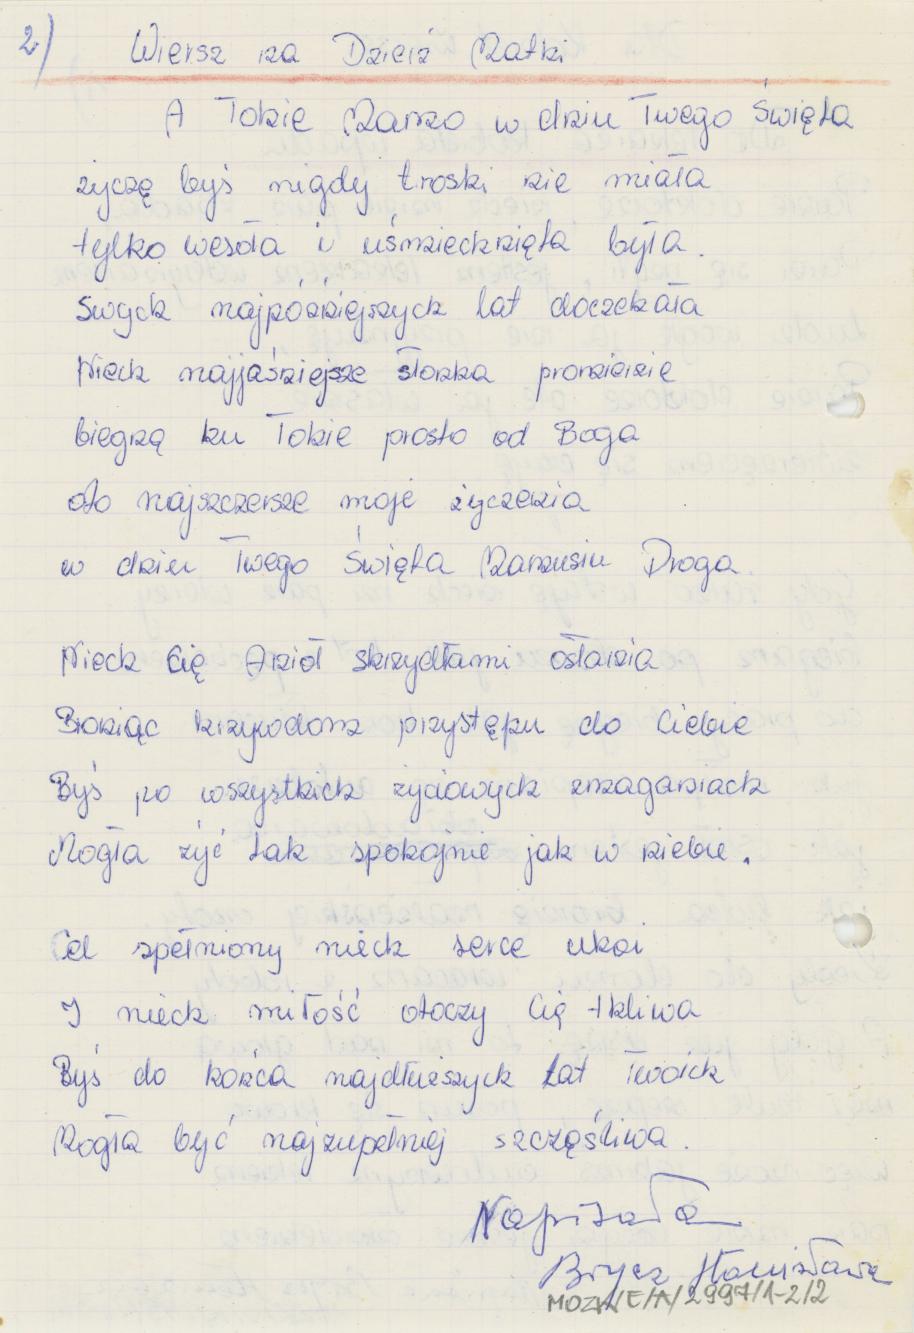 2) Wiersz na Dzień Matki
A Tobie Mamo w dniu Twego Święta
życzę byś nigdy troski nie miała
tylko wesoła i uśmiechnięta była.
Swych najpóźniejszych lat doczekała
Niech najjaśniejsze słonka promienie
biegną ku Tobie prosto od Boga
oto najszczersze moje życzenia
w dzień Twego Święta Mamusiu Droga.
Niech Cię Anioł skrzydłami osłania
Broniąc krzywdom przystępu do Ciebie
Byś po wszystkich życiowych zmaganiach
Mogła żyć tak spokojnie jak w niebie.
Cel spełniony niech serce ukoi
I niech miłość otoczy Cię tkliwa
Byś do końca najdłuższych lat Twoich
Mogła być najzupełniej szczęśliwa.
Napisała
Brycz Stanisława
MOZW/E/A/2997/1-2/2